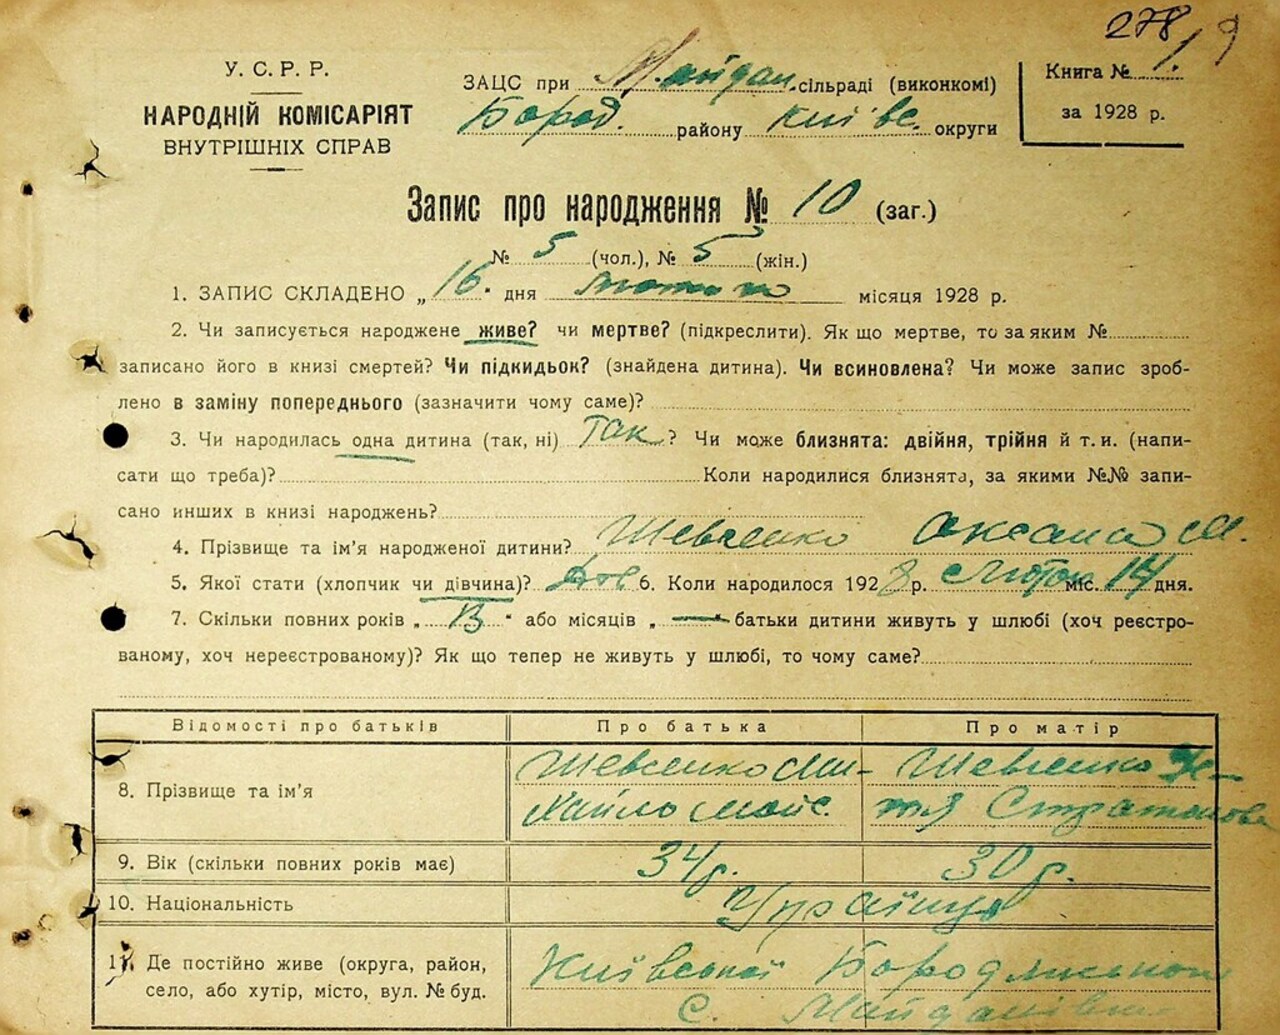 278 19
У. С. Р. Р.
НАРОДНІЙ КОМІСАРІЯТ
ВНУТРІШНІХ СПРАВ
ЗАЦС при Майдан. сільраді (виконкомі)
Бород. району Київс. округи
Книга № 1
за 1928 р.
Запис про народження № 10 (заг.)
№ 5 (чол.), № 5 (жін.)
1. ЗАПИС СКЛАДЕНО „ 16. дня лютого місяця 1928 р.
2. Чи записується народжене живе? чи мертве? (підкреслити). Як що мертве, то за яким №
записано його в книзі смертей? Чи підкидьок? (знайдена дитина). Чи всиновлена? Чи може запис зроб-
лено в заміну попереднього (зазначити чому саме)?
3. Чи народилась одна дитина (так, ні) Так? Чи може близнята: двійня, трійня й т. и. (напи-
сати що треба)? Коли народилися близнята, за якими №№ запи-
сано инших в книзі народжень?
4. Прізвище та ім'я народженої дитини? Шевченко Оксана М.
5. Якої стати (хлопчик чи дівчина)? Дів 6. Коли народилося 1928 р. Лютого міс. 14 дня.
7. Скільки повних років „ 13 “ або місяців „ — “ батьки дитини живуть у шлюбі (хоч реєстро-
ваному, хоч нереєстрованому)? Як що тепер не живуть у шлюбі, то чому саме?
Відомості про батьків Про батька Про матір
8. Прізвище та ім'я
Шевченко Ми-
хайло Мойс.
Шевченко
Стратонова
9. Вік (скільки повних років має) 34 р. 30 р.
10. Національність Українці
11. Де постійно живе (округа, район,
село, або хутір, місто, вул. № буд.
Київської Бородянського
С. Майданівка